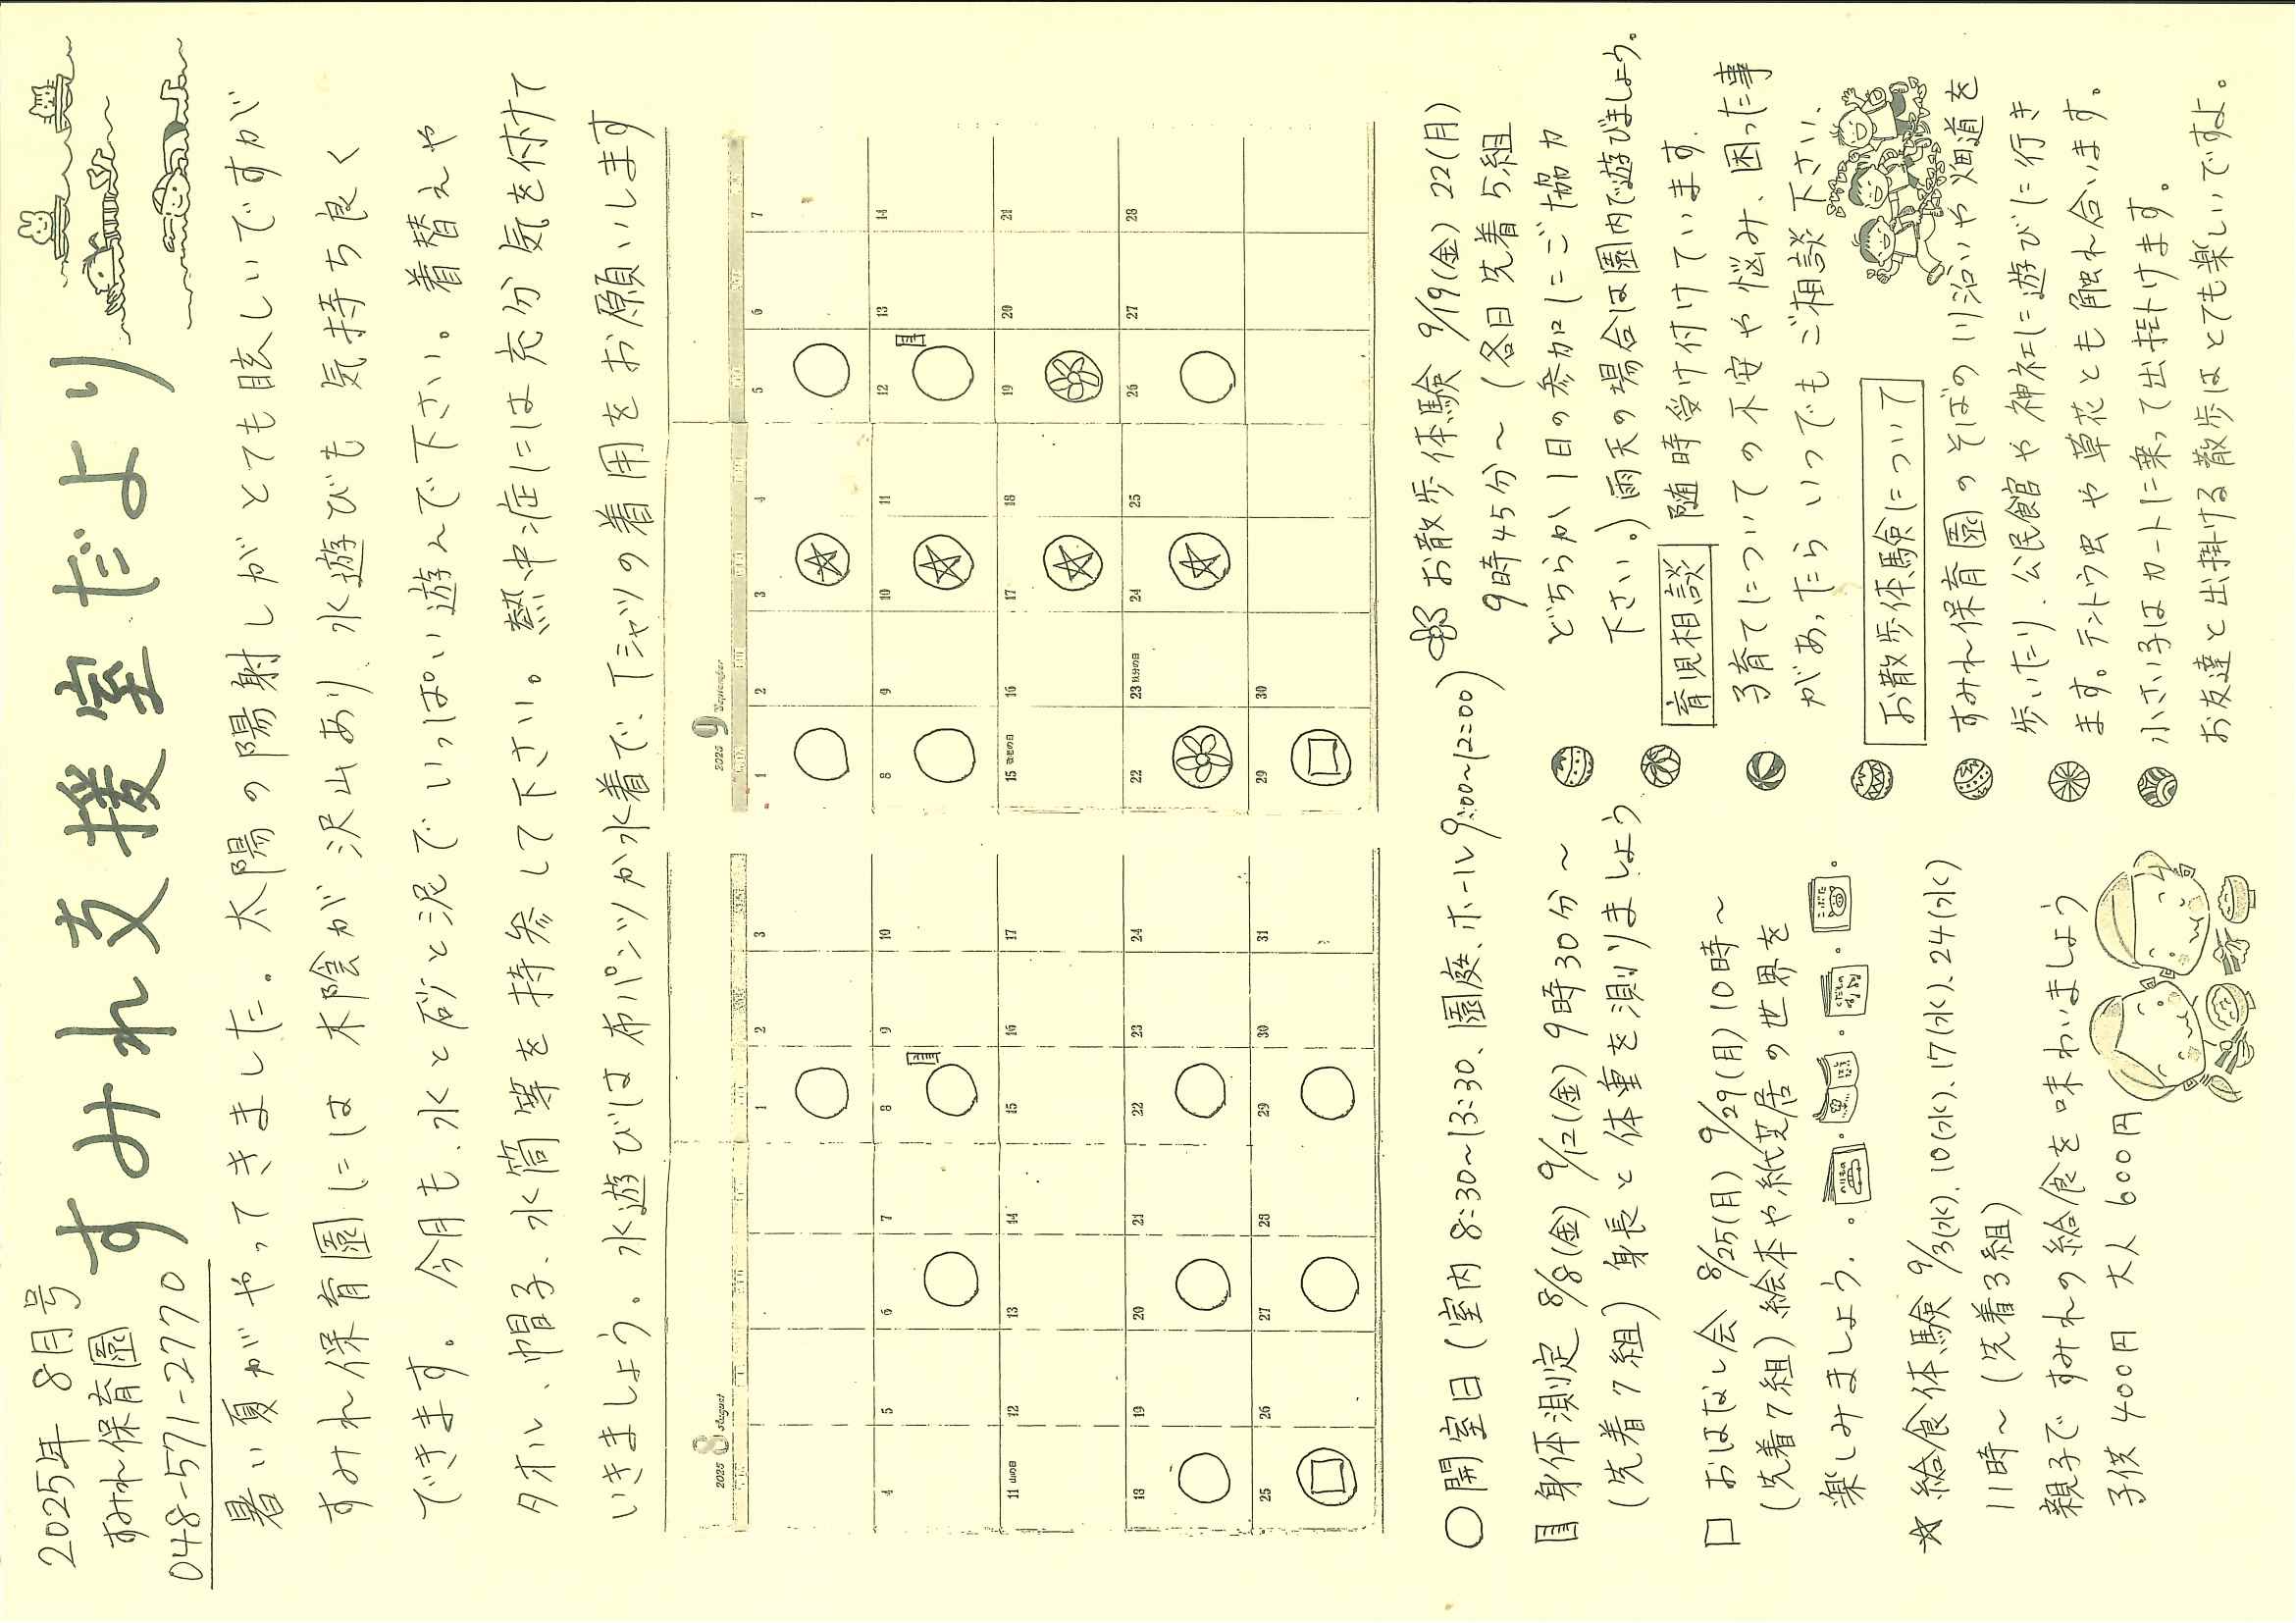 2025年 8月号
すみれ保育園
048-571-2770
すみれ支援室だより
暑い夏がやってきました。太陽の陽射しがとても眩しいですが
すみれ保育園には木陰が沢山あり、水遊びも気持ち良く
できます。今月も、水と砂と泥でいっぱい遊んで下さい。着替えや
タオル、帽子、水筒等を持参して下さい。熱中症には充分気を付けて
いきましょう。水遊びは布パンツか水着で、Tシャツの着用をお願いします
2025 8 August
1 2 3
4 5 6 7 8 9 10
11 山の日 12 13 14 15 16 17
18 19 20 21 22 23 24
25 26 27 28 29 30 31
2025 9 September
1 2 3 4 5 6 7
8 9 10 11 12 13 14
15 敬老の日 16 17 18 19 20 21
22 23 秋分の日 24 25 26 27 28
29 30
○開室日(室内 8:30〜13:30、園庭、ホール9:00〜12:00)
身体測定 8/8(金) 9/12(金) 9時30分〜
(先着7組) 身長と体重を測りましょう
□ おはなし会 8/25(月) 9/29(月) 10時〜
(先着7組) 絵本や紙芝居の世界を
楽しみましょう。
☆ 給食体験 9/3(水)、10(水)、17(水)、24(水)
11時〜 (先着3組)
親子ですみれの給食を味わいましょう
子供 400円 大人 600円
お散歩体験 9/19(金) 22(月)
9時45分〜 (各日先着5組
どちらか1日の参加にご協力
下さい。) 雨天の場合は園内で遊びましょう。
育児相談 随時受け付けています
子育てについての不安や悩み、困った事
があったらいつでもご相談下さい、
お散歩体験について
すみれ保育園のそばの川沿いや畑道を
歩いたり、公民館や神社に遊びに行き
ます。テントウ虫や草花とも触れ合います。
小さい子はカートに乗って出掛けます。
お友達と出掛ける散歩はとても楽しいですよ。